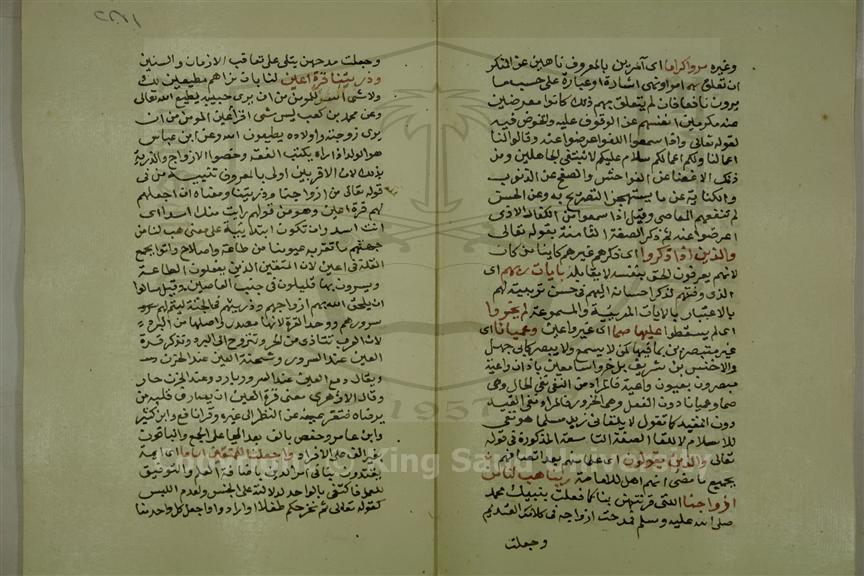 وغيره مروا كراما اى آمرين بالمعروف ناهين عن المنكر
ان تعلق بهم امر او نهى اشارة او عبارة على حسب ما
يرون نافعا فان لم يتعلق بهم ذلك كانوا معرضين
عنه مكرمين انفسهم عن الوقوف عليه والخوض فيه
لقوله تعالى واذا سمعوا اللغو اعرضوا عنه وقالوا لنا
اعمالنا ولكم اعمالكم سلام عليكم لا نبتغى الجاهلين ومن
ذلك الاغضا عن الفواحش والصفح عن الذنوب
والكناية عن ما يستهجن التصريح به وعن الحسن
لم تنفعهم المعاصى وقيل اذا سمعوا من الكفار الاذى
اعرضوا عنه ثم ذكر الصفة الثامنة بقوله تعالى
والذين اذا ذكروا اى ذكرهم غيرهم كاينا من كان
لانهم يعرفون الحق بنفسه لا بقايله بايات ربهم اى
الذى وفقهم لذكر احسانه اليهم فى حسن تربيته لهم
بالاعتبار بالايات المرئية والمسموعة لم يخروا
اى لم يسقطوا عليها صما اى غير واعين وعميانا اى
غير متبصرين بما فيها كمن لا يسمع ولا يبصر كابى جهل
والاخنس بن شريق بل خروا سامعين باذان واعية
مبصرين بعيون واعية فالمراد من النفى نفى الحال وهى
صما وعميانا دون الفعل وهو الخرور فالمراد نفى القيد
دون المقيد كما تقول لا يلقانى زيد مسلما هو نفى
للسلام لا للقا الصفة التاسعة المذكورة فى قوله
تعالى والذين يقولون اى علما منهم بعد اتصافهم
بجميع ما مضى انهم اهل للامامة ربنا هب لنا من
ازواجنا اللتى قرنتهن بنا كما فعلت بنبيك محمد
صلى الله عليه وسلم فمدحت ازواجه فى كلامك القديم
وجعلت
وجعلت مدحهن يتلى على تعاقب الازمان والسنين
وذرياتنا قرة اعين لنا بان نراهم مطيعين لك
ولا شى اسر للمؤمن من ان يرى حبيبه يطيع الله تعالى
وعن محمد بن كعب ليس شى اقر لعين المؤمن من ان
يرى زوجته واولاده يطيعون الله وعن ابن عباس
هو الولد اذا راه يكتب الفقه وخصوا الازواج والذرية
بذلك لان الاقربين اولى بالمعروف تنبيه من فى
قوله تعالى من ازواجنا وذرياتنا ومعناه ان اجعلهم
لهم قرة اعين وهو من قولهم رايت منك اسدا اى
انت اسد وان تكون ابتدايية على معنى هب لنا من
جهتهم ما تقر به عيوننا من طاعة واصلاح واتوا بجمع
القلة فى اعين لان المتقين الذين يفعلون الطاعة
ويسرون بها قليلون فى جنب العاصين وقيل سالوا
ان يلحق الله بهم ازواجهم وذريتهم فى الجنة ليتم لهم
سرورهم ووحد القرة لانها مصدر واصلها من البرد
لان العرب تتاذى من الحر وتتروح الى البرد وتذكر قرة
العين عند السرور وسخنة العين عند الحزن
ويقال دمع العين عند السرور بارد وعند الحزن حار
وقال الازهرى معنى قرة العين ان يصادف قلبه من
يرضاه فتقر عينه عن النظر الى غيره وقرا نافع وابن كثير
وابن عامر وحفص بالف بعد اليا على الجمع والباقون
بغير الف على الافراد واجعلنا للمتقين اماما اى ايمة
يقتدون بنا فى امر الدين بافاضة العلم والتوفيق
للعمل فاكتفى بالواحد لدلالته على الجنس ولعدم اللبس
كقوله تعالى ثم نخرجكم طفلا او ارادوا واجعل كل واحد منا
Copyright © King Saud University
1957